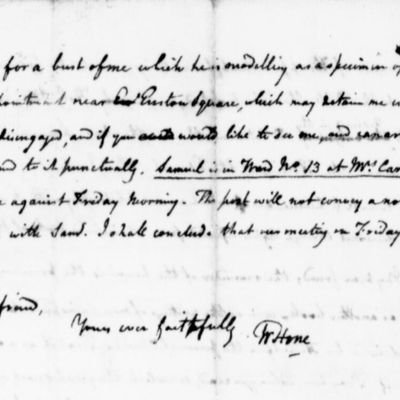 for a bust of me which he is modelling as a specimen of
near Euston Square, which may detain me
disengaged, and if you would like to see me, and can
to it punctually. Samuel is in Ward No. 13 at Mrs. Car
against Friday morning. The post will not convey a no
with Saml. I shall conclude that our meeting on Friday
friend,
Yours ever faithfully
W Hone